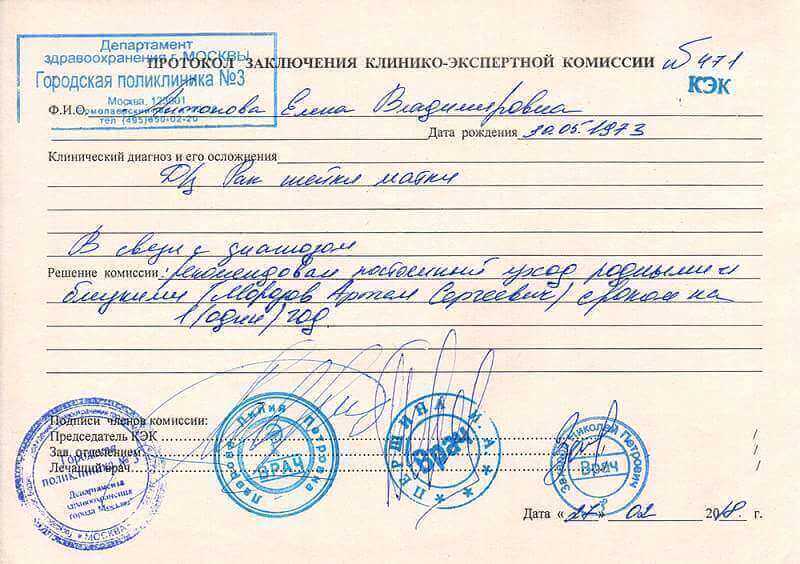 Департамент
здравоохранения г. МОСКВЫ
Городская поликлиника №3
Москва,
тел (495)650-02-20
ПРОТОКОЛ ЗАКЛЮЧЕНИЯ КЛИНИКО-ЭКСПЕРТНОЙ КОМИССИИ №471
КЭК
Ф.И.О. Елена Владимировна
Дата рождения 30.05.1973
Клинический диагноз и его осложнения
Рак шейки матки
В связи с диагнозом
Решение комиссии: рекомендован постоянный уход родными и
близкими (Морозов Артем Сергеевич) сроком на
1 (один) год
Подписи членов комиссии:
Председатель КЭК
Зав. отделением
Лечащий врач
Городская
поликлиника № 3
Департамента
здравоохранения
города Москвы
* МОСКВА *
Лилия Петровна
ВРАЧ
ПЕРШИНА И. А.
Врач
Николай Петрович
Врач
Дата «27» 02 2018 г.